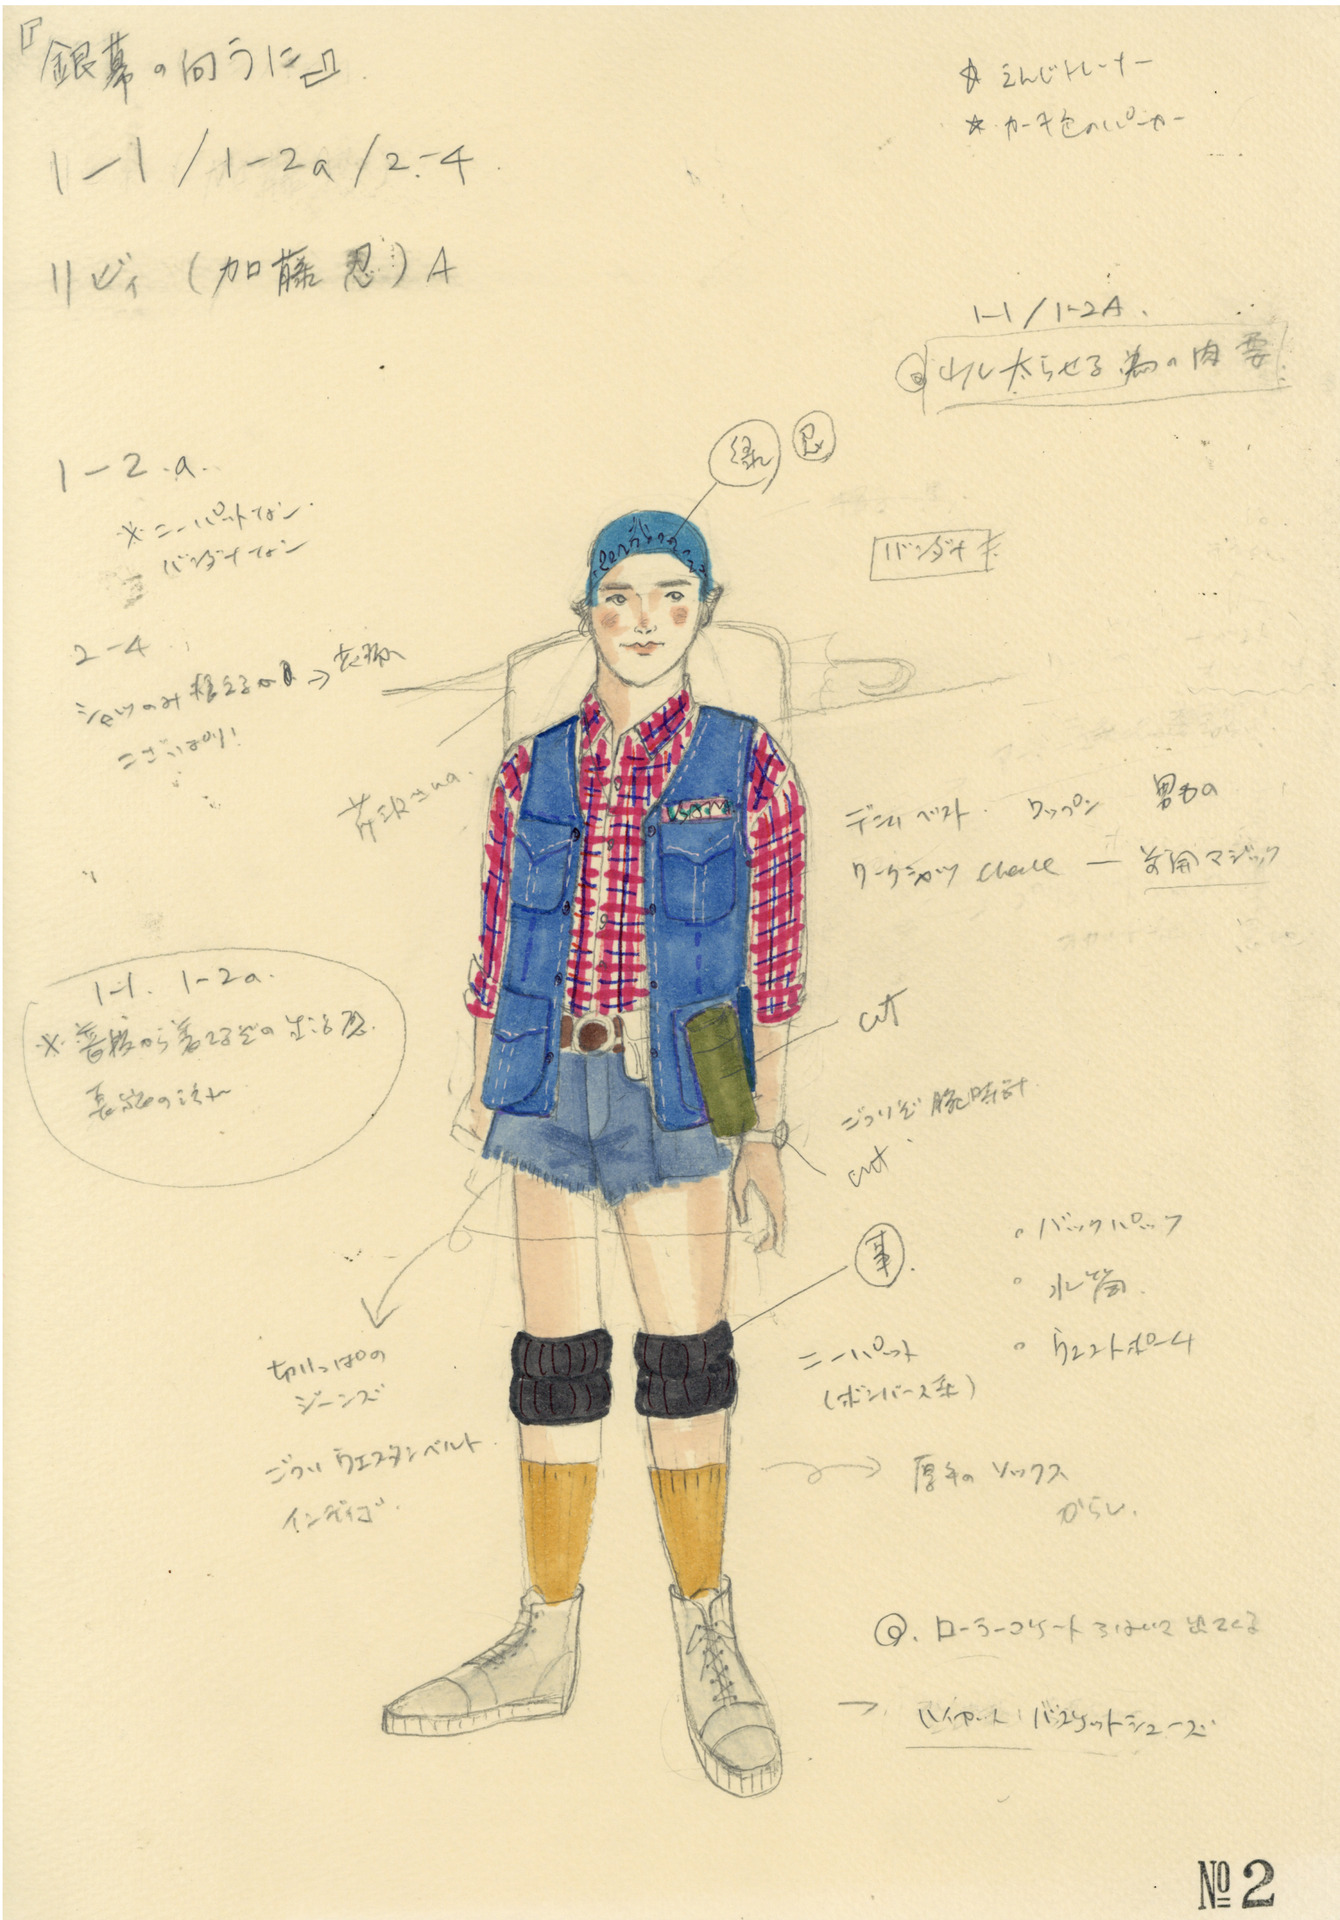 『銀幕の向うに』
1-1 / 1-2a / 2-4
リビィ (加藤 忍) A
えんじトレーナー
カーキ色のパーカー
1-1 / 1-2A.
太らせる為の肉
忍
1-2.a.
※ニーパットなし
バンダナなし
バンダナ
2-4
シャツのみ
デニムベスト. ワッペン 男もの
ワークシャツ check — 前開マジック
1-1. 1-2a.
※普段から着てるぞの生活感.
cut
ごついぞ 腕時計
cut
事
・バックパック
・水筒.
・ウエストポーチ
ニーパット
切りっぱの
ジーンズ
ごついウエスタンベルト
インディゴ.
厚手のソックス
からし.
ローラースケートをはいて出てくる
→ ハイカット バスケットシューズ
№ 2